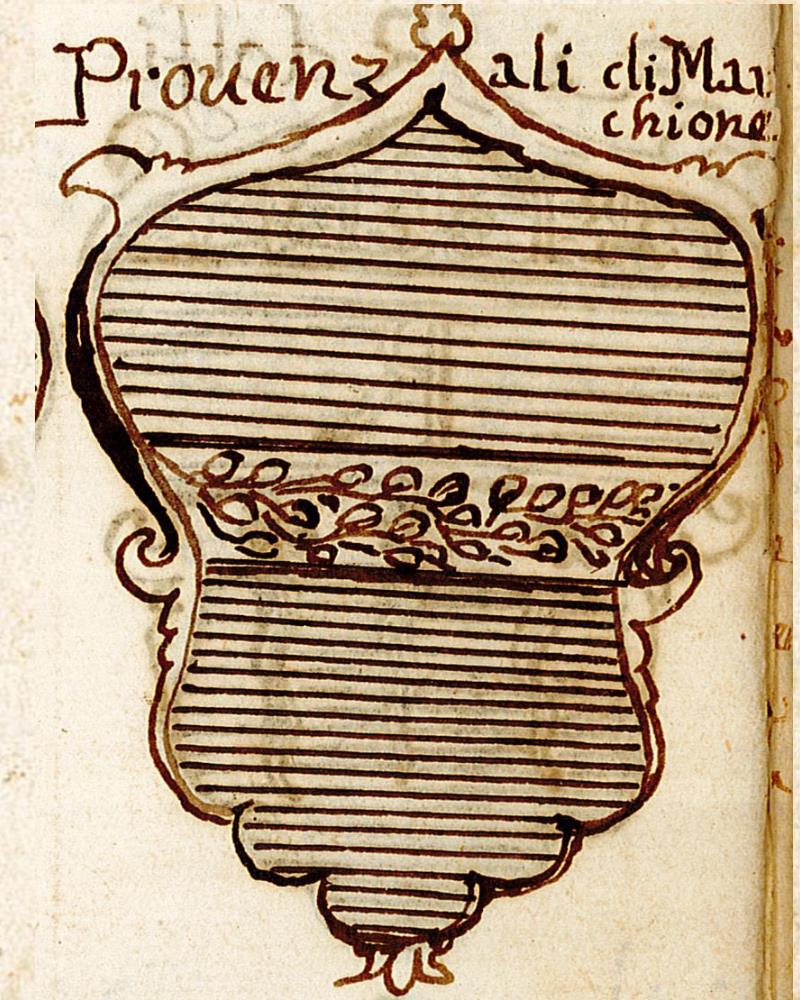 Prouenzali di Mar
chione.